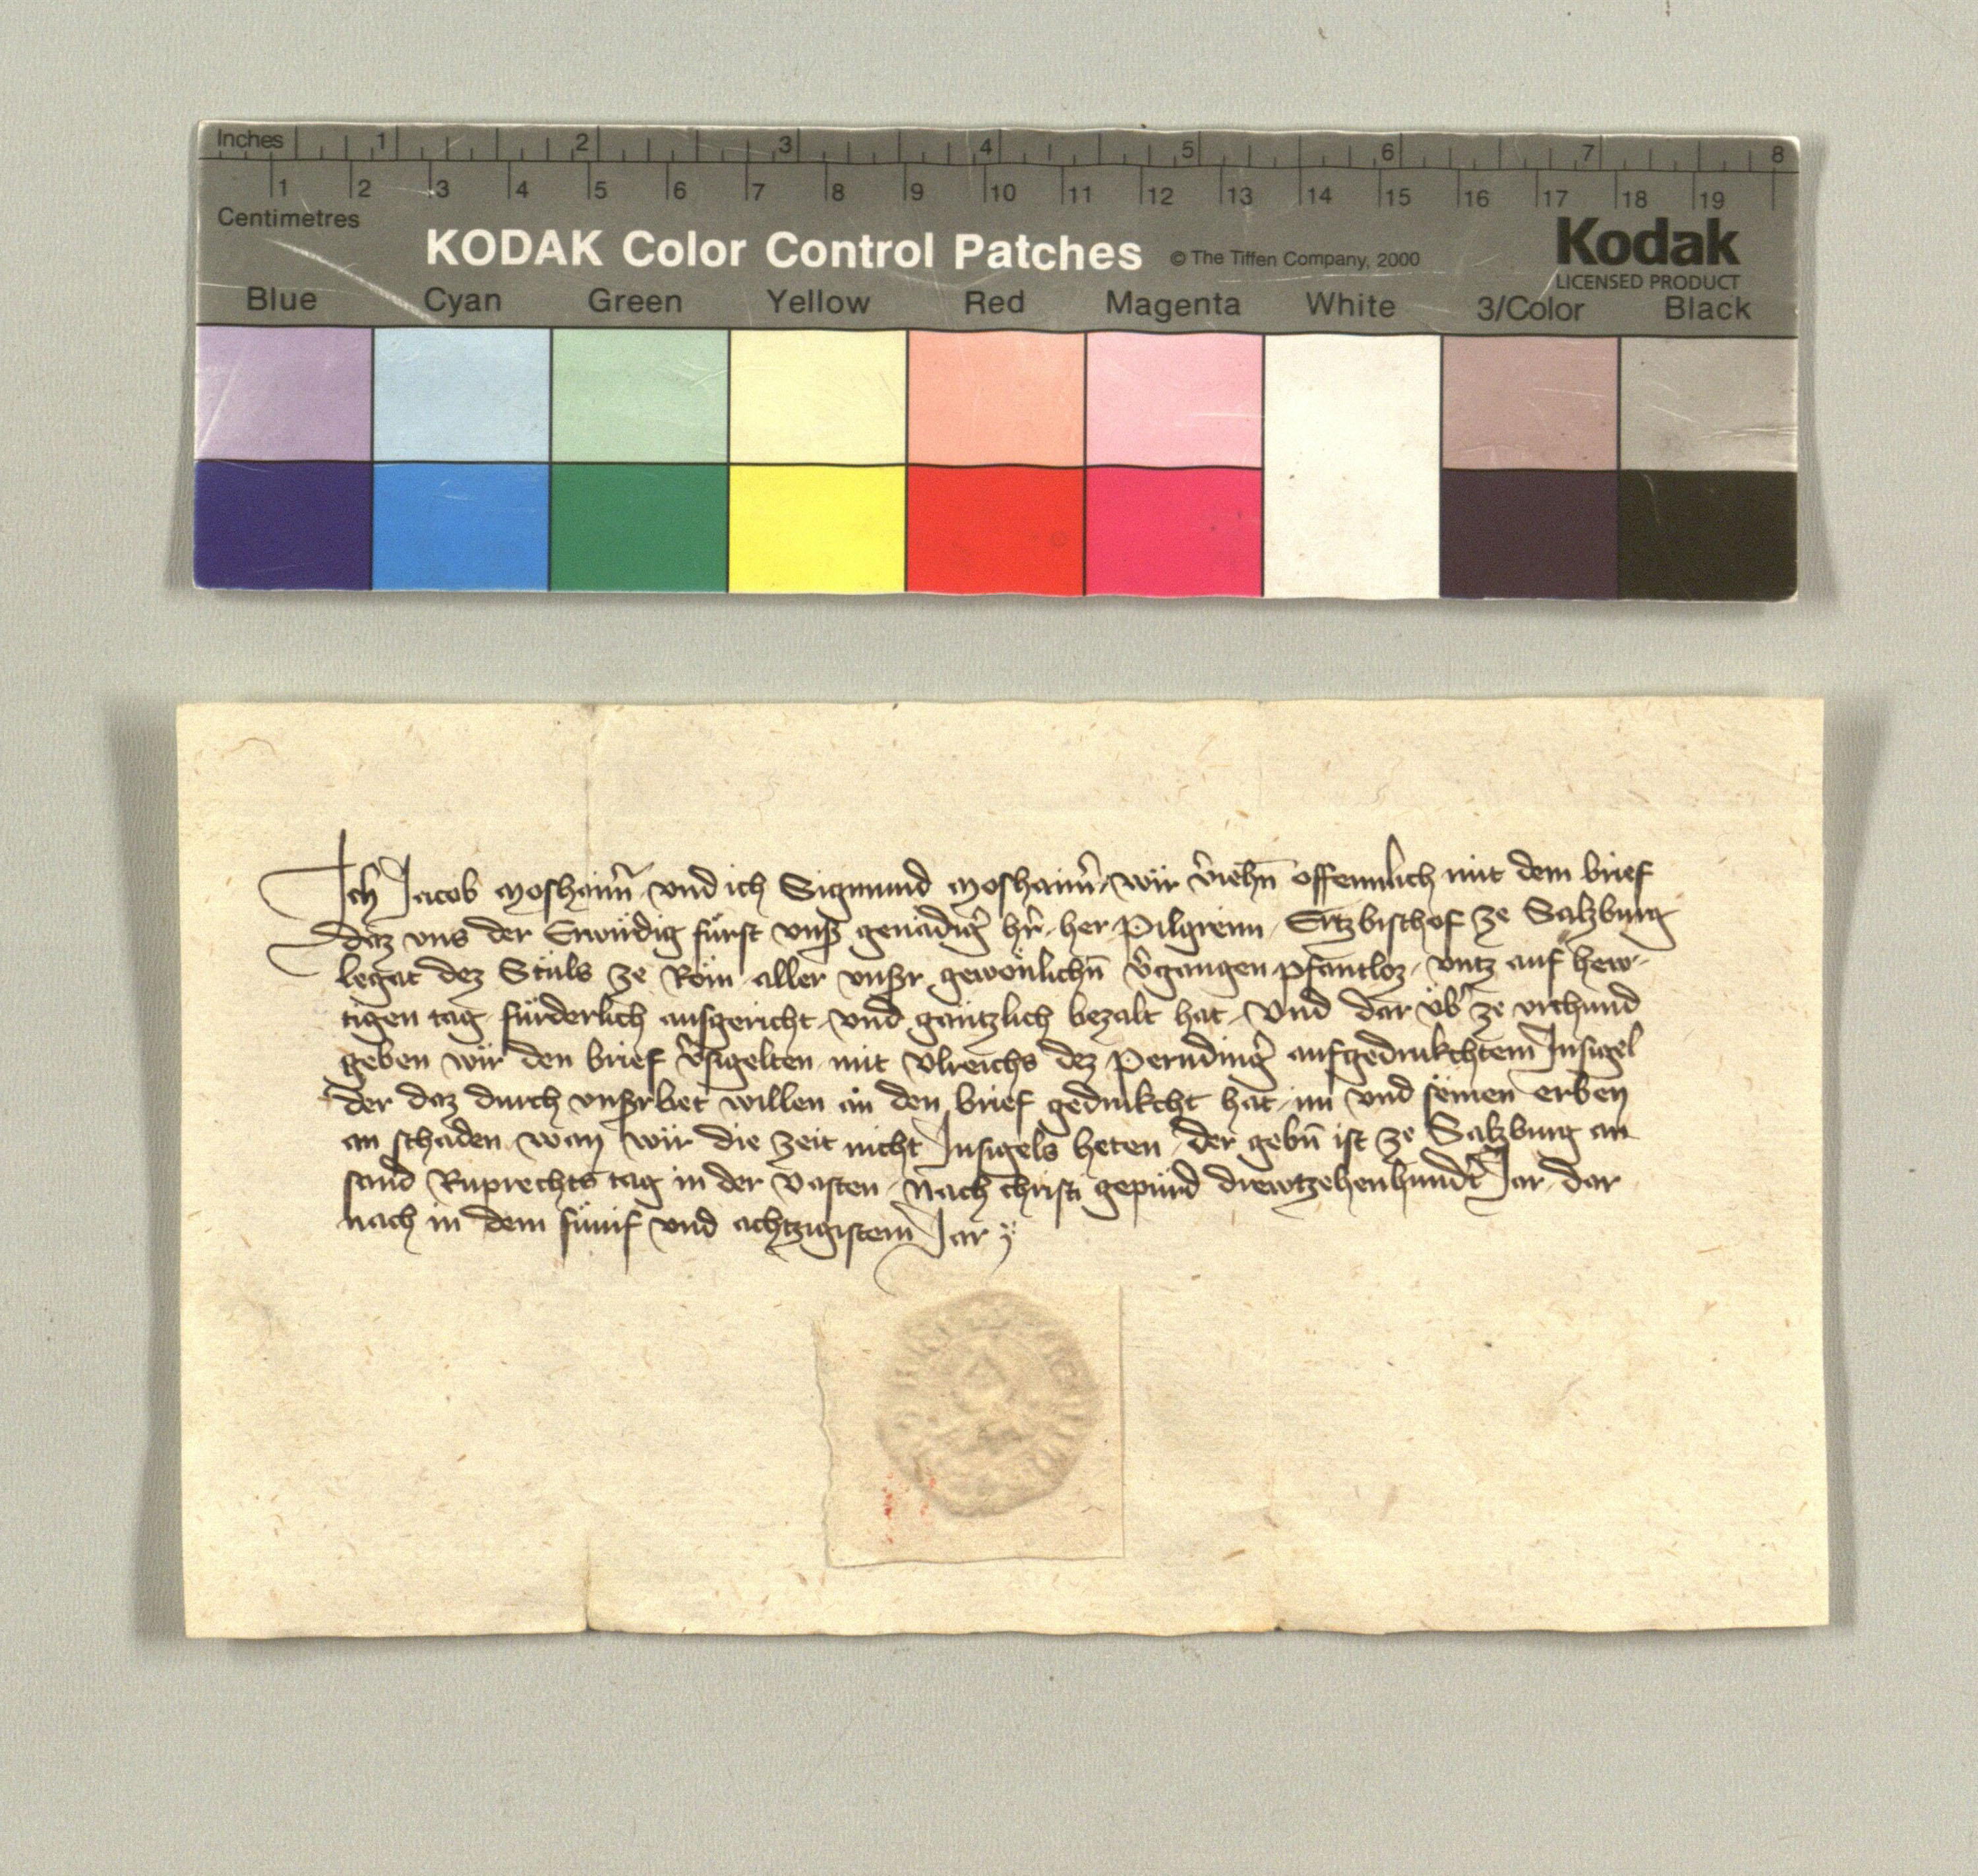 Inches 1 2 3 4 5 6 7 8
1 2 3 4 5 6 7 8 9 10 11 12 13 14 15 16 17 18 19
Centimetres
KODAK Color Control Patches © The Tiffen Company, 2000 Kodak
LICENSED PRODUCT
Blue Cyan Green Yellow Red Magenta White 3/Color Black
Ich Jacob Moshaimer und ich Sigmund Moshaimer wir offennlich mit dem brief
daz uns der Erwirdig fürst unser genädiger her Pilgreim Ertzbischof ze Salzburg
legat dez Stuls ze Rom aller unser gewönlichen vergangen pfantloz untz auf hew-
tigen tag fürderlich ausgericht und gäntzlich bezalt hat Und dar über ze urchund
geben wir den brief versigelten mit Ulreichs dez Perndinger aufgedrukchtem Insigel
der daz durch unser bet willen an den brief gedrukcht hat im und seinen erben
an schaden wan wir die zeit nicht Insigels heten der geben ist ze Salzburg an
sand Ruprechts tag in der Vasten Nach christi gepürd drewtzehenhundert Jar dar
nach in dem fünif und achtzigistem Jar